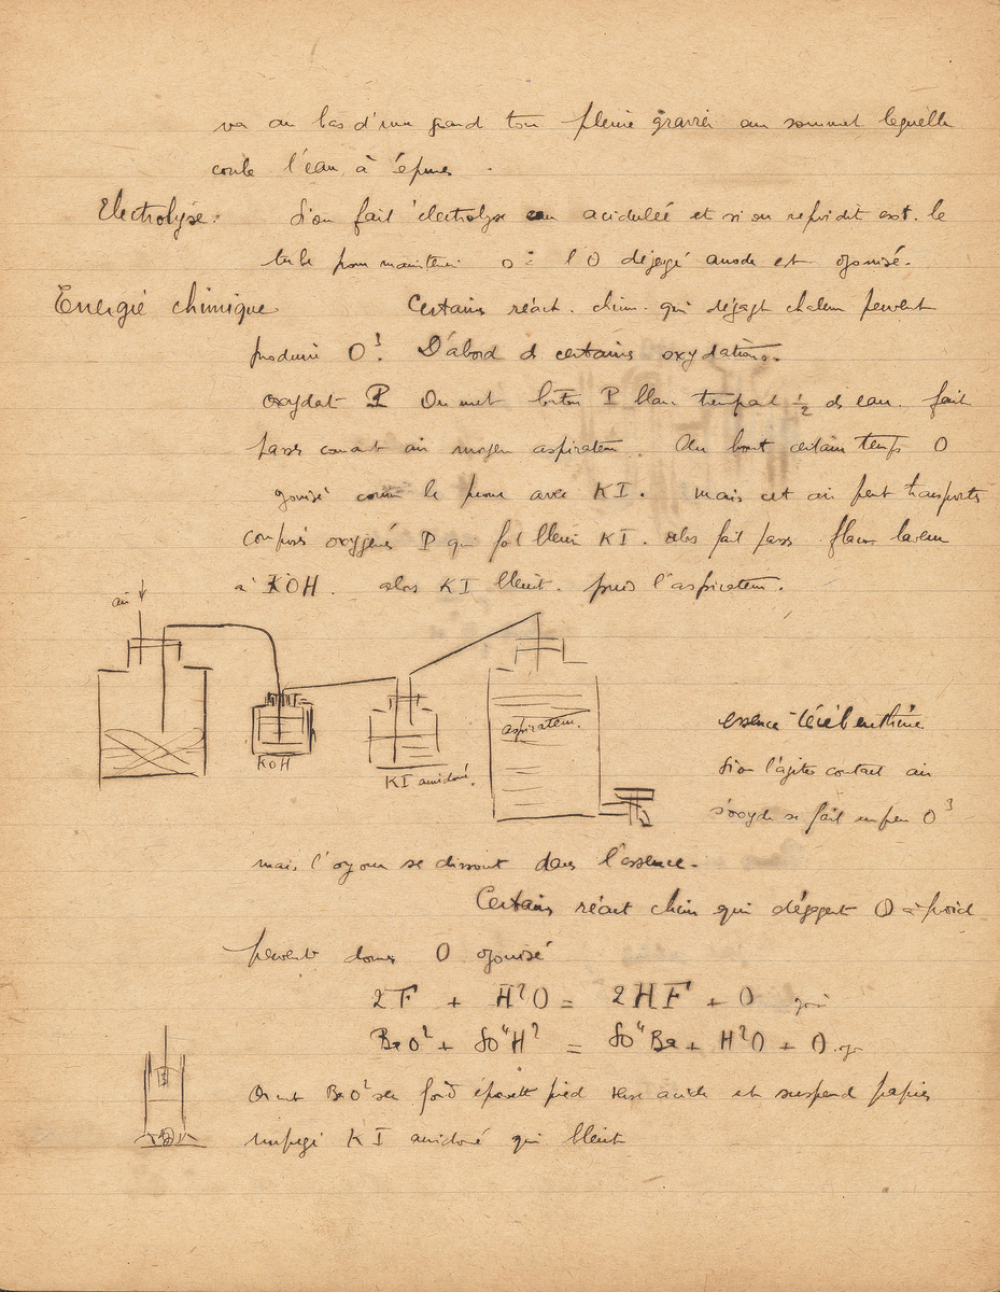 va au bas d'une grand tour pleine gravier au sommet laquelle
coule l'eau à épurer.
Electrolyse: Si on fait électrolyse eau acidulée et si on refroidit ext. le
tube pour maintenir 0° l'O dégagé anode est ozonisé.
Energie chimique Certains réact. chim. qui dégagt chaleur peuvent
produire O³. D'abord d certaines oxydations.
oxydat P On met bâton P blanc trempant ½ ds eau. fait
passer courant air moyen aspirateur. Au bout certain temps O
ozonisé comme le prouve avec KI. mais cet air peut transporter
composés oxygénés P qui fot bleuir KI. alors fait passer flacon laveur
à KOH. alors KI bleuit. puis l'aspirateur.
air
KOH
KI amidoné.
aspirateur.
essence térébenthine
Si on l'agite contact air
s'oxyde se fait un peu O³
mais l'ozone se dissout dans l'essence.
Certains réact chim qui dégagent O à froid
peuvent donner O ozonisé
2F + H²O = 2HF + O
BaO² + SO⁴H² = SO⁴Ba + H²O + O
On met BaO² au fond éprouvette pied verse acide et suspend papier
KI amidoné qui bleuit